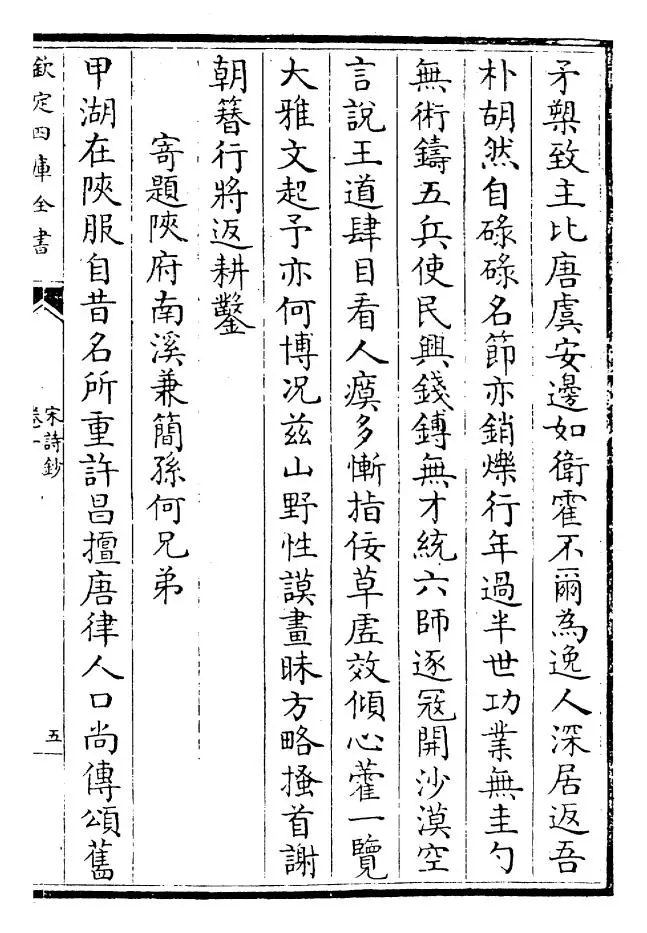 矛槊致主比唐虞安邊如衛霍不爾為逸人深居返吾
朴胡然自碌碌名節亦銷爍行年過半世功業無圭勺
無術鑄五兵使民興錢鎛無才統六師逐冦開沙漠空
言說王道肆目看人瘼多慚指佞草虛效傾心藿一覽
大雅文起予亦何博况兹山野性謨畫昧方略搔首謝
朝簪行將返耕鑿
寄題陜府南溪兼簡孫何兄弟
甲湖在陜服自昔名所重許昌擅唐律人口尚傳頌舊
欽定四庫全書
宋詩鈔
卷一
五